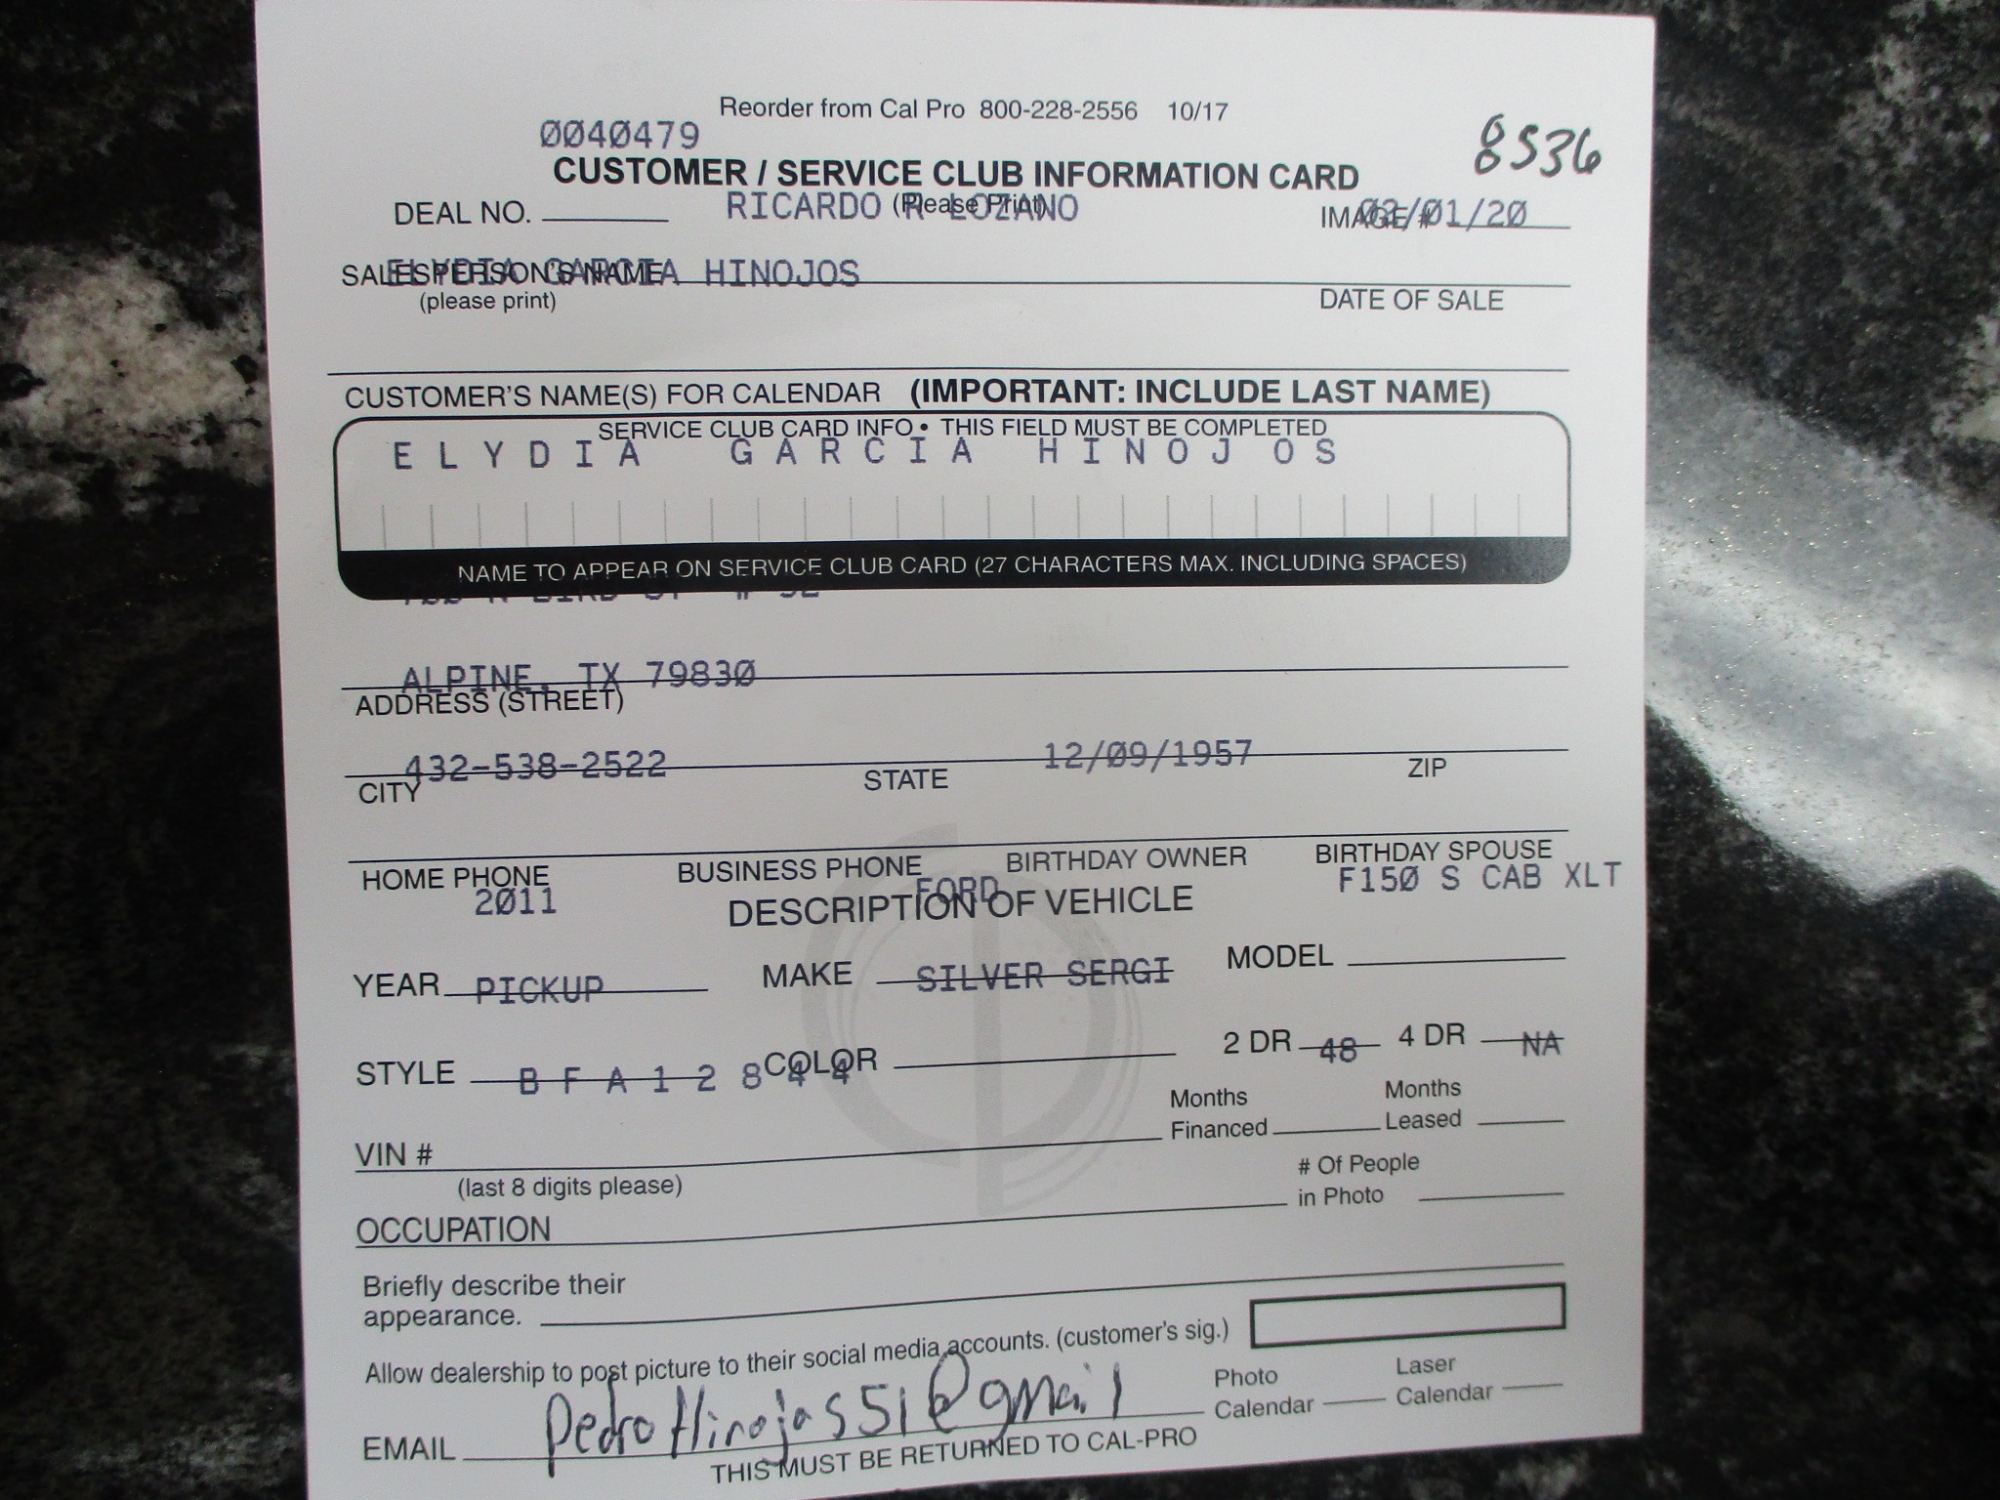 Reorder from Cal Pro 800-228-2556 10/17
0040479
8536
CUSTOMER / SERVICE CLUB INFORMATION CARD
(Please Print)
DEAL NO. RICARDO R LOZANO IMAGE # /01/20
SALESPERSON'S NAME ELYDIA GARCIA HINOJOS
(please print) DATE OF SALE
CUSTOMER'S NAME(S) FOR CALENDAR (IMPORTANT: INCLUDE LAST NAME)
SERVICE CLUB CARD INFO • THIS FIELD MUST BE COMPLETED
ELYDIA GARCIA HINOJOS
NAME TO APPEAR ON SERVICE CLUB CARD (27 CHARACTERS MAX. INCLUDING SPACES)
N BIRD ST #
ALPINE, TX 79830
ADDRESS (STREET)
432-538-2522 12/09/1957
CITY STATE ZIP
HOME PHONE BUSINESS PHONE BIRTHDAY OWNER BIRTHDAY SPOUSE
2011 FORD F150 S CAB XLT
DESCRIPTION OF VEHICLE
YEAR PICKUP MAKE SILVER SERGI MODEL
STYLE BFA12844 COLOR 2 DR 48 4 DR NA
Months Financed Months Leased
VIN #
(last 8 digits please)
# Of People in Photo
OCCUPATION
Briefly describe their
appearance.
Allow dealership to post picture to their social media accounts. (customer's sig.)
Photo Calendar Laser Calendar
EMAIL pedroHinojos51@gmail
THIS MUST BE RETURNED TO CAL-PRO